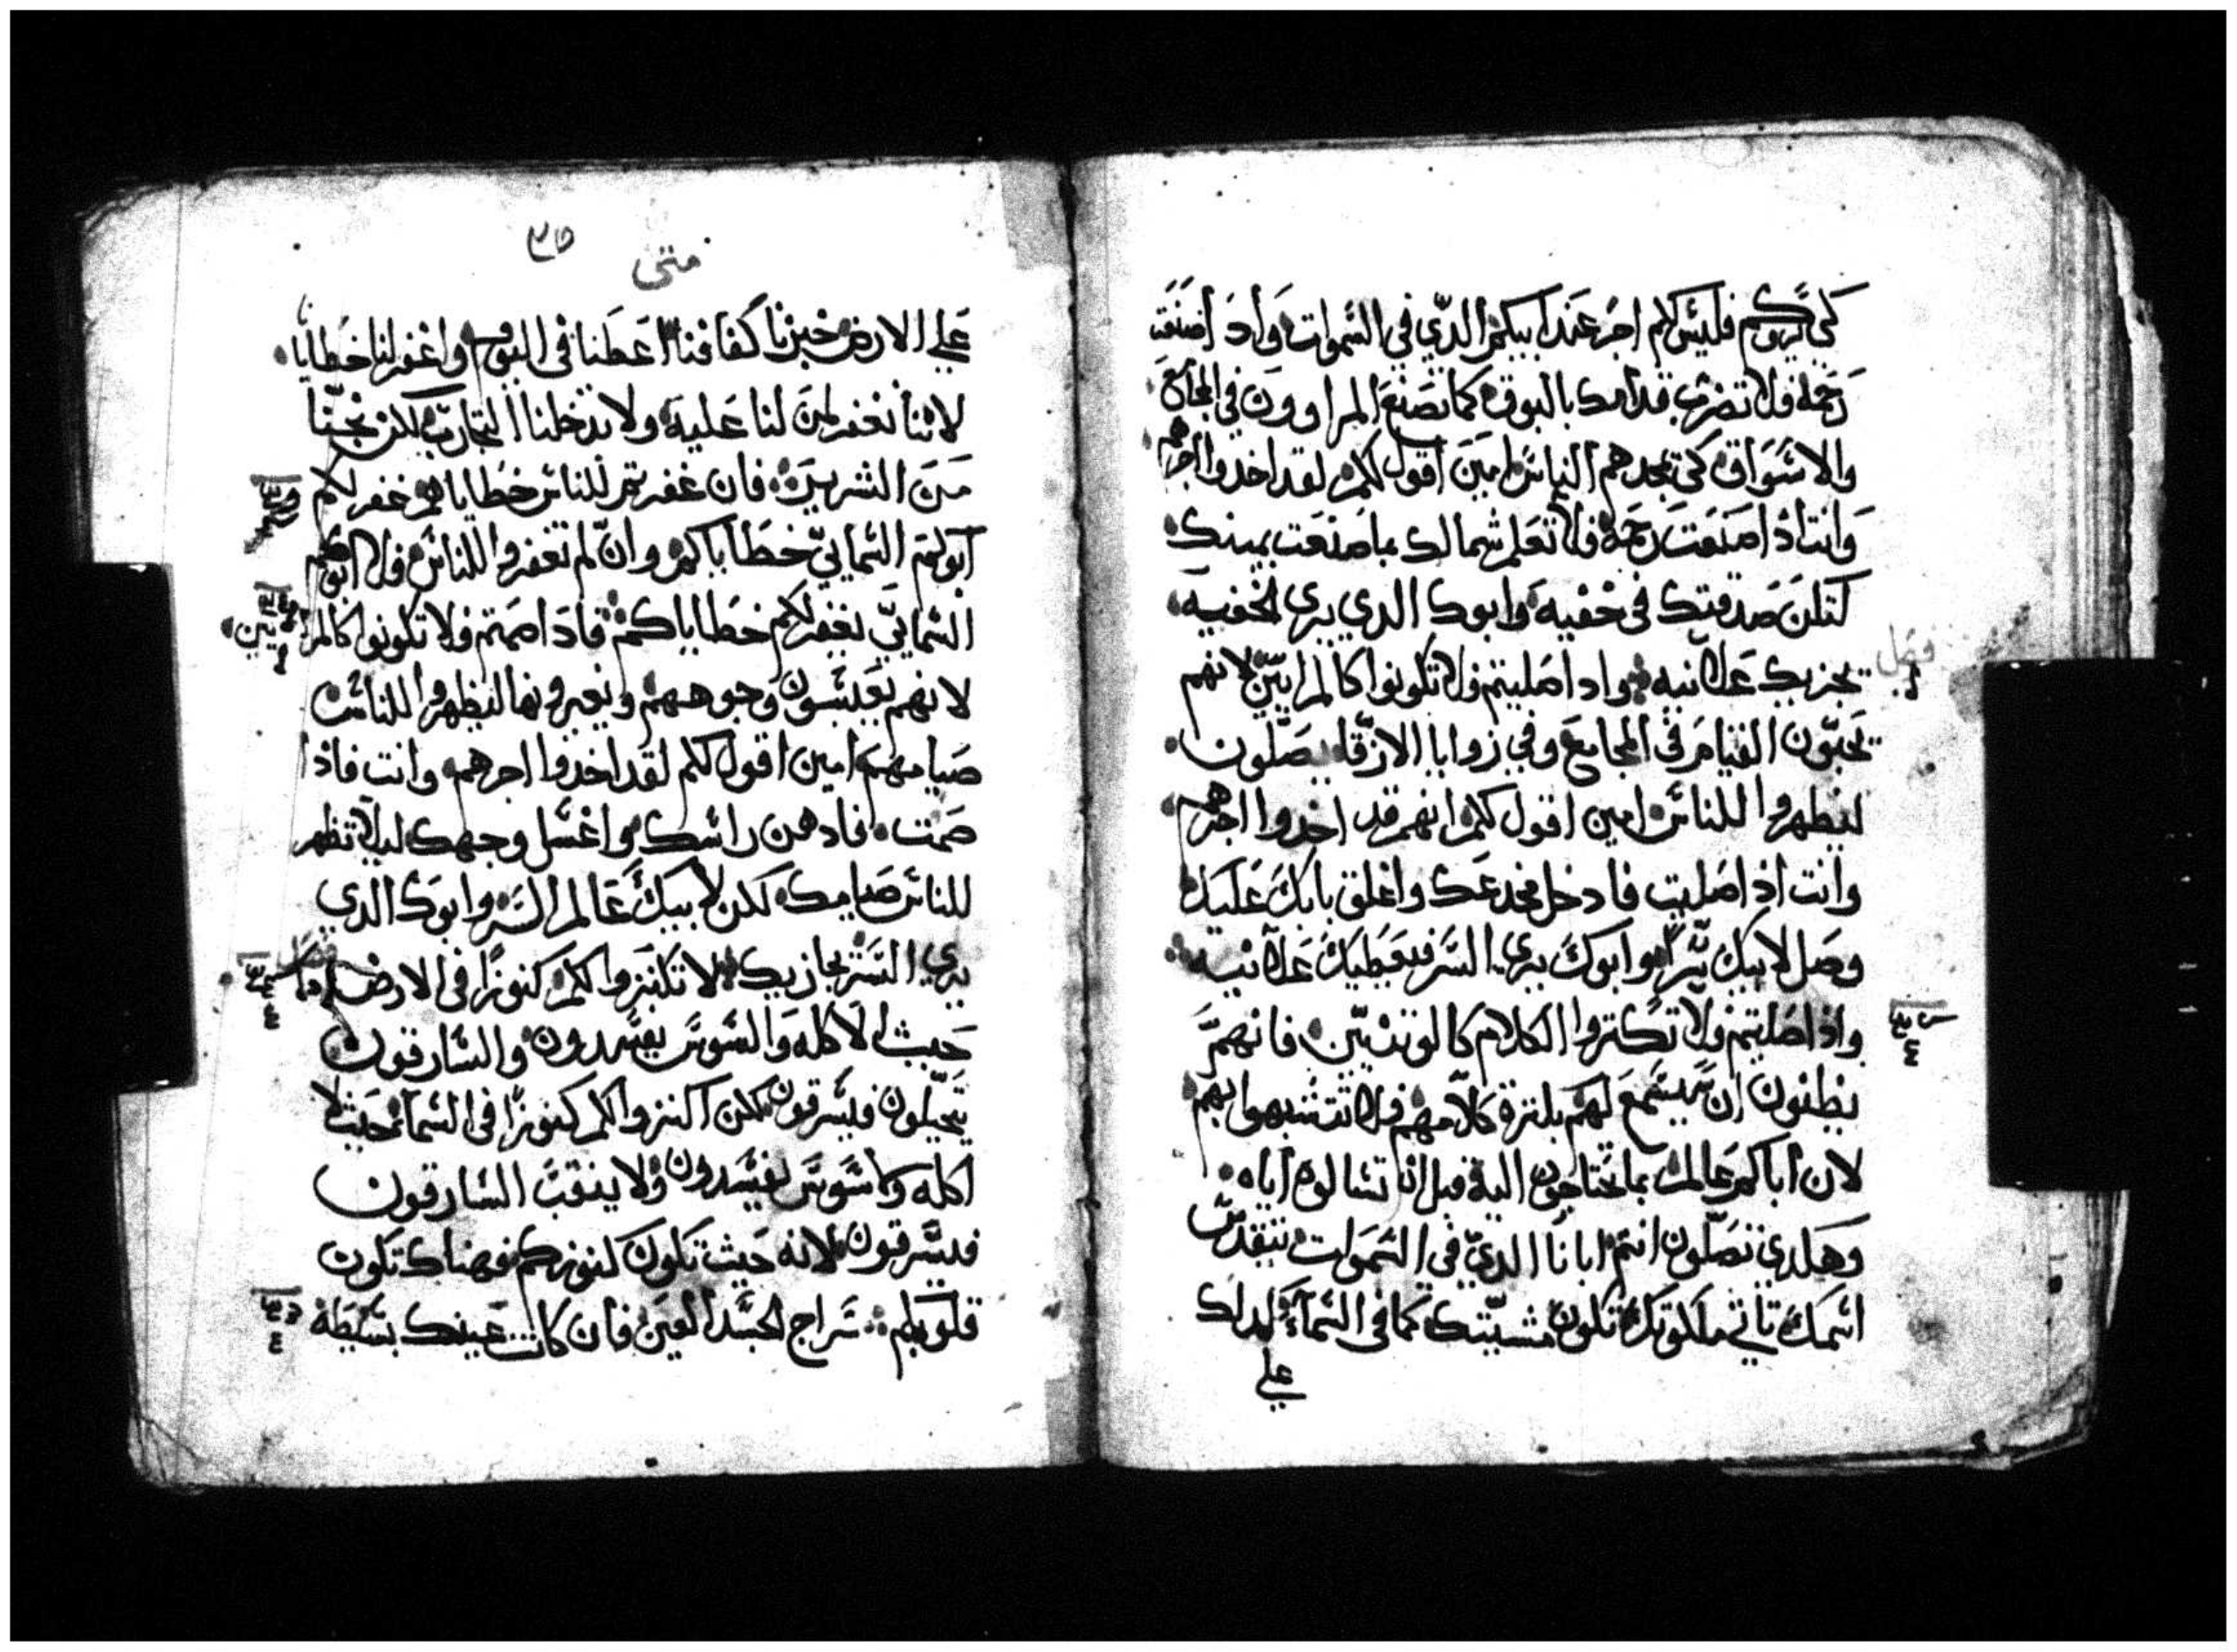 كي يروكم فليس لكم اجر عند ابيكم الدي في السموات واد اصنعت
رحمه فلا تضرب قدامك بالبوق كما تصنع المراوون في المجامع
والاسواق كي تمجدهم الناس امين اقول لكم لقد اخدوا اجرهم
وانت اذ اصنعت رحمة فلا تعلم شمالك بما صنعت يمينك
لتلن صدقتك في خفيه وابوك الدي يري الخفيه
يجزيك علانيه واد اصليتم فلا تكونوا كالمراييين لانهم
يحبون القيام في المجامع وفي زوايا الازقا يصلون
ليظهروا للناس امين اقول لكم انهم قد اخدوا اجرهم
وانت اذ اصليت فادخل مخدعك واغلق بابك عليك
وصل لابيك سرا وابوك يري السر فيعطيك علانيه
واذ اصليتم فلا تكتروا الكلام كالوتنيين فانهم
يظنون ان يسمع لهم بكترة كلامهم فلا تتشبهوا بهم
لان اباكم عالم بما تحتاجون الية قبل ان تسالوه اياه
وهكدي تصلون انتم ابانا الدي في السموات يتقدس
اسمك تاتي ملكوتك تكون مشيتك كما في السماء كدلك
علي
٣٥
متى
علي الارض خبزنا كفافنا اعطنا في اليوم واغفر لنا خطايانا
لاننا نغفر لمن لنا علية ولا تدخلنا التجارب لكن نجينا
من الشرير فان غفرتم للناس خطاياهم غفر لكم
ابوكم السمايي خطاياكم وان لم تغفروا للناس فلا ابوكم
السمايي يغفر لكم خطاياكم فاد اصمتم فلا تكونوا كالمراييين
لانهم يعبسون وجوههم ويغيرونها ليظهروا للناس
صيامهم امين اقول لكم لقد اخدوا اجرهم وانت فاذا
صمت فادهن راسك واغسل وجهك ليلا تظهر
للناس صيامك لكن لابيك عالم السر وابوك الدي
يري السر يجازيك لا تكنزوا لكم كنوزا في الارض
حيث الاكله والسوس يفسدون والسارقون
يتحيلون فيسرقون لكن اكنزوا لكم كنوزا في السماء حيث لا
اكله ولا سوس يفسدون ولا ينقب السارقون
فيسرقون لانه حيث تكون كنوزكم فهناك تكون
قلوبكم سراج الجسد العين فان كانت عينك بسيطة